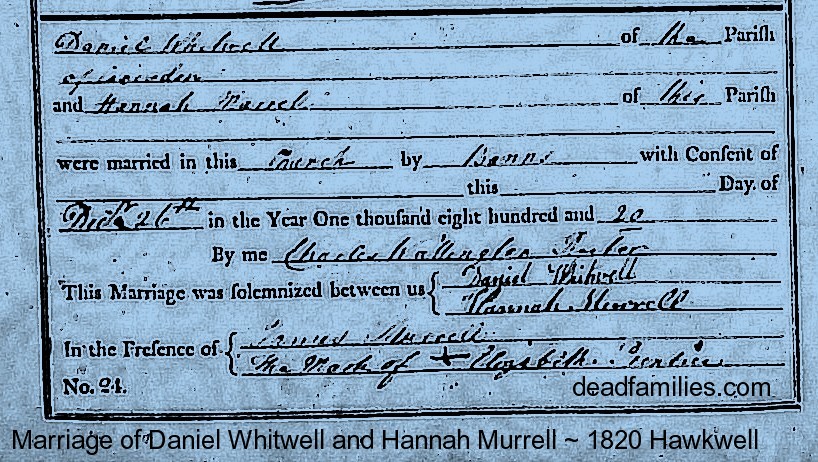 Daniel Whitwell of the Parish
of
and Hannah of this Parish
were married in this Church by Banns with Consent of
this Day of
Decr 26th in the Year One thousand eight hundred and 20
By me Charles Wallington
This Marriage was solemnized between us { Daniel Whitwell
Hannah Murrell
In the Presence of { James Murrell
The Mark of + Elizabeth
No. 24.
deadfamilies.com
Marriage of Daniel Whitwell and Hannah Murrell ~ 1820 Hawkwell